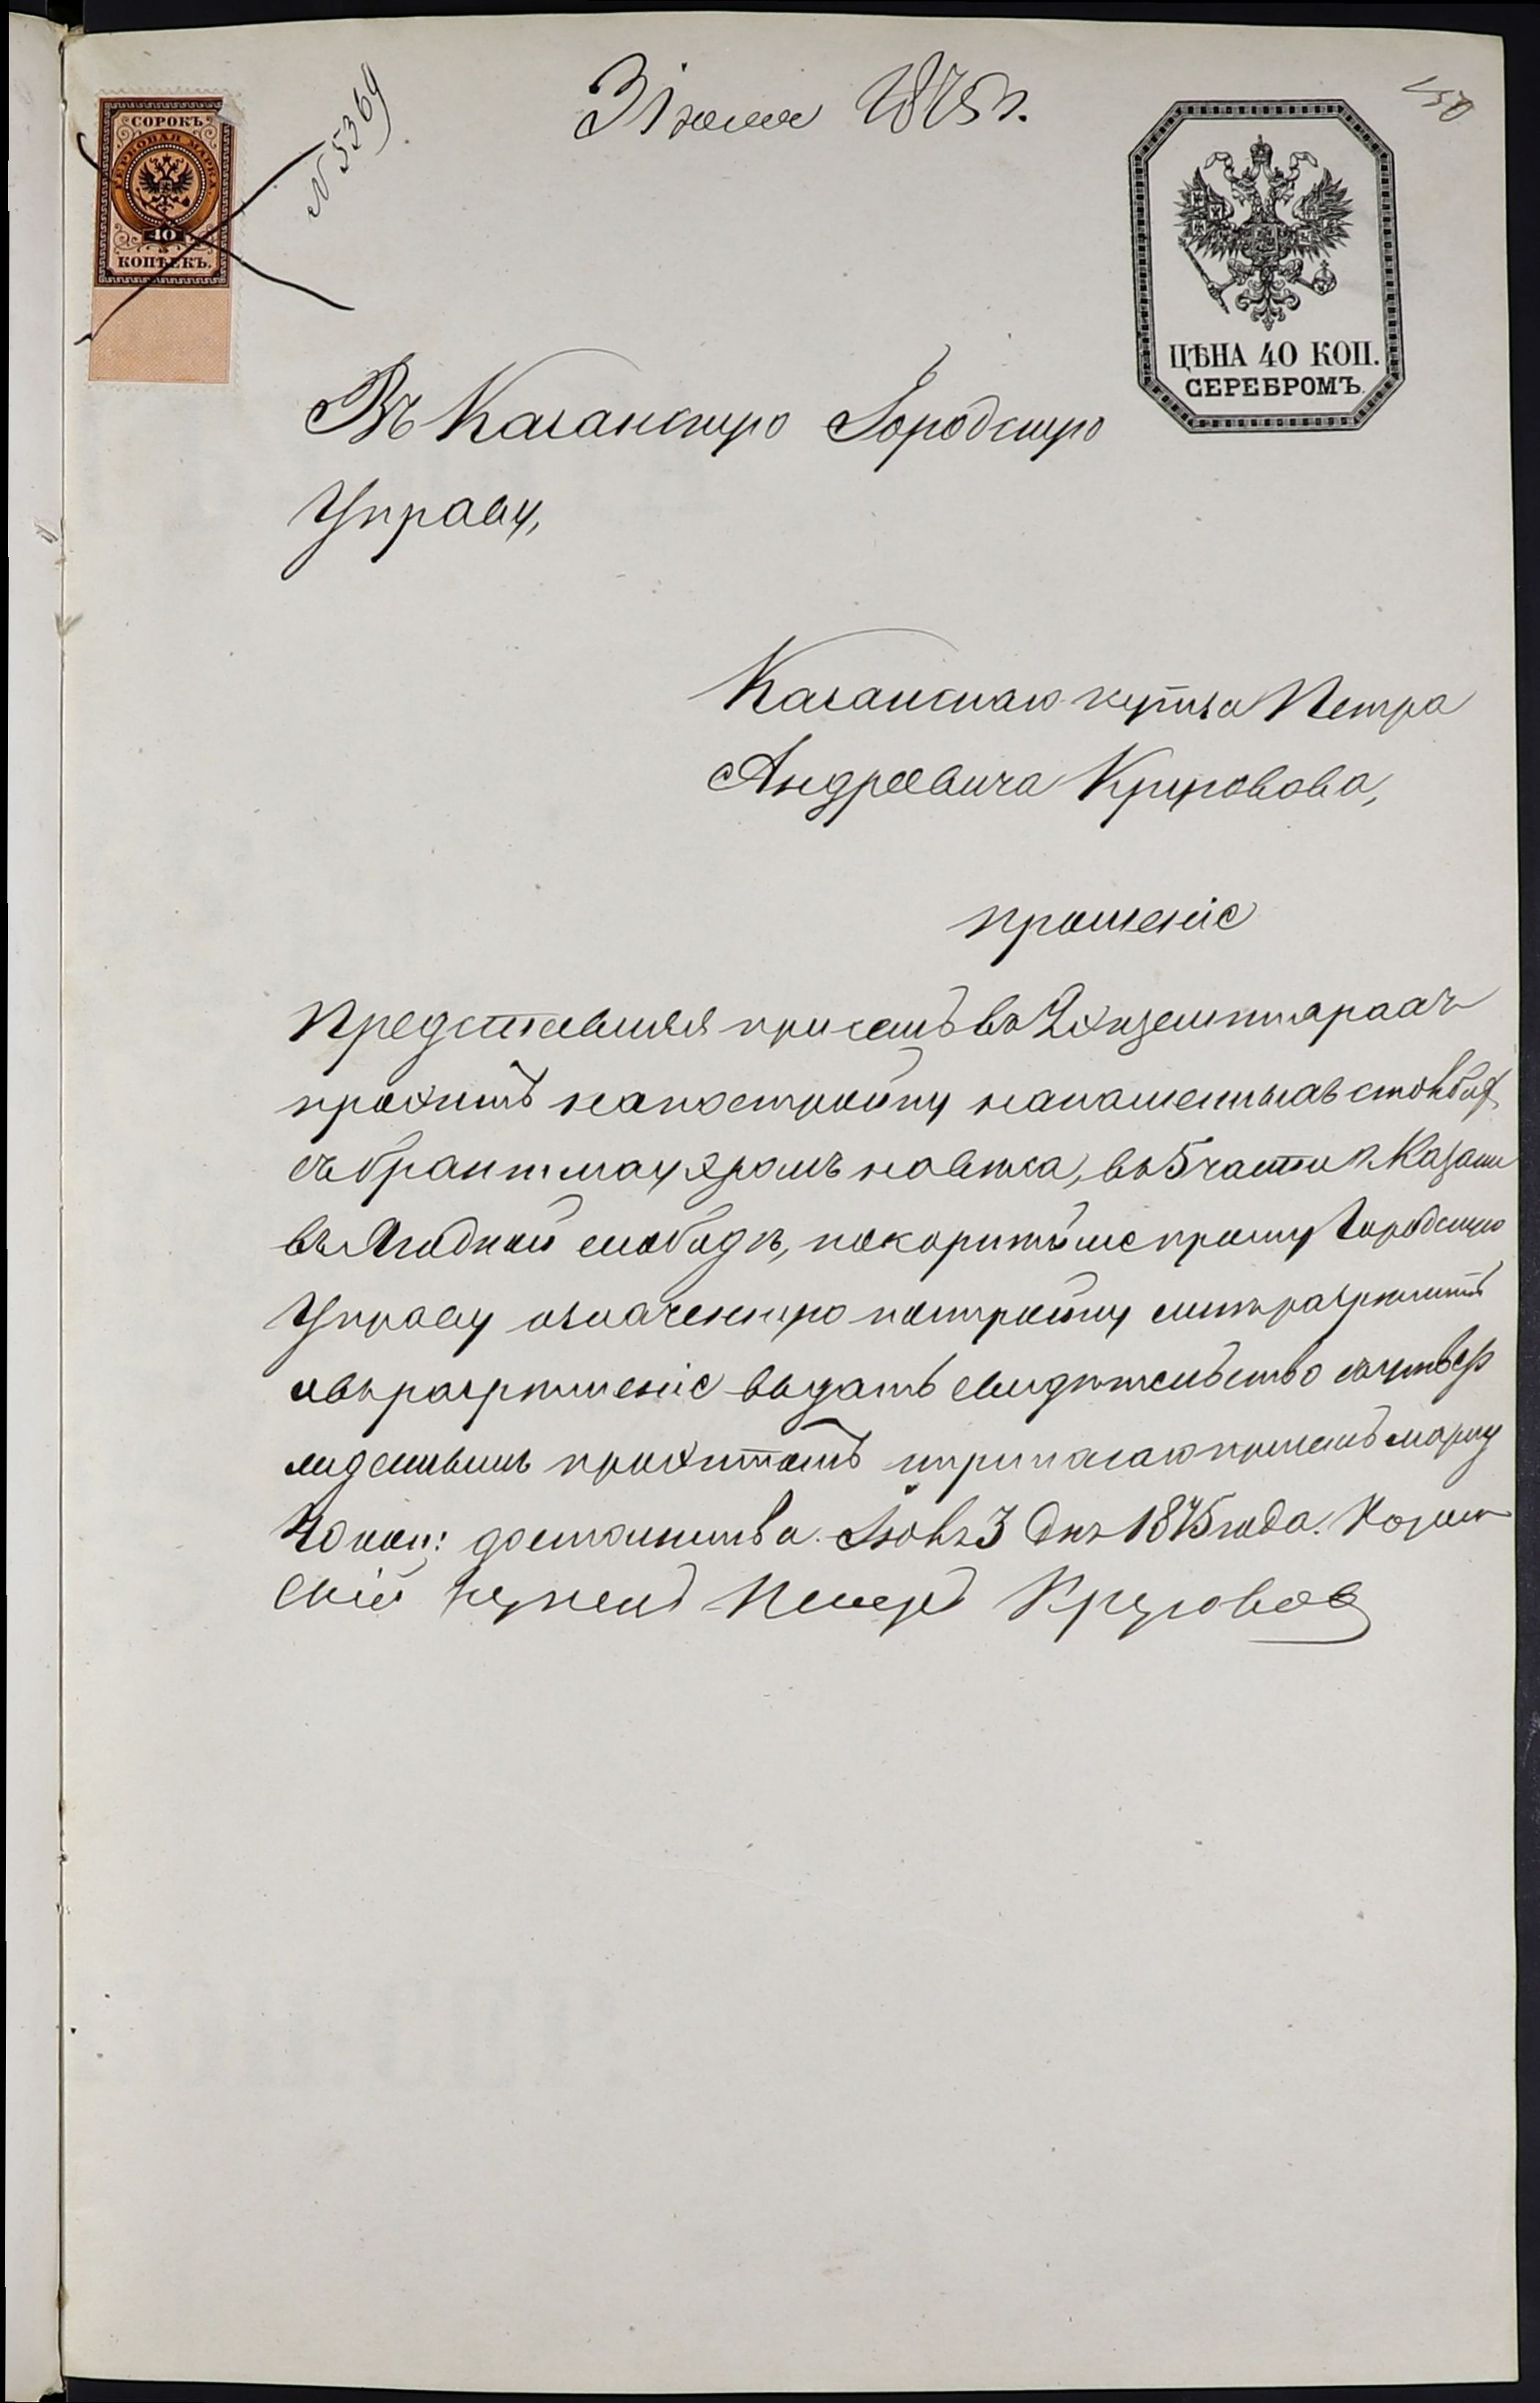 3 Iюня 1875 г.
150
№ 5369
СОРОКЪ
ГЕРБОВАЯ МАРКА
40
КОПѢЕКЪ.
ЦѢНА 40 КОП.
СЕРЕБРОМЪ.
Въ Казанскую Городскую
Управу,
Казанскаго купца Петра
Андреевича Круповова,
прошеніе
Представляя присемъ въ 2 экземплярахъ
проэктъ на постройку на каменныхъ столбах
съ брантмауэромъ навѣса, въ 5 части г. Казани
въ Ягодной слободѣ, покорнѣйше прошу Городскую
Управу означенную постройку мнѣ разрѣшить
и въ разрѣшеніе выдать свидѣтельство съ утвер
жденнымъ проэктомъ и прилагаю при семъ марку
40 коп: достоинства. Іюня 3 дня 1875 года. Казан
скій купецъ Петръ